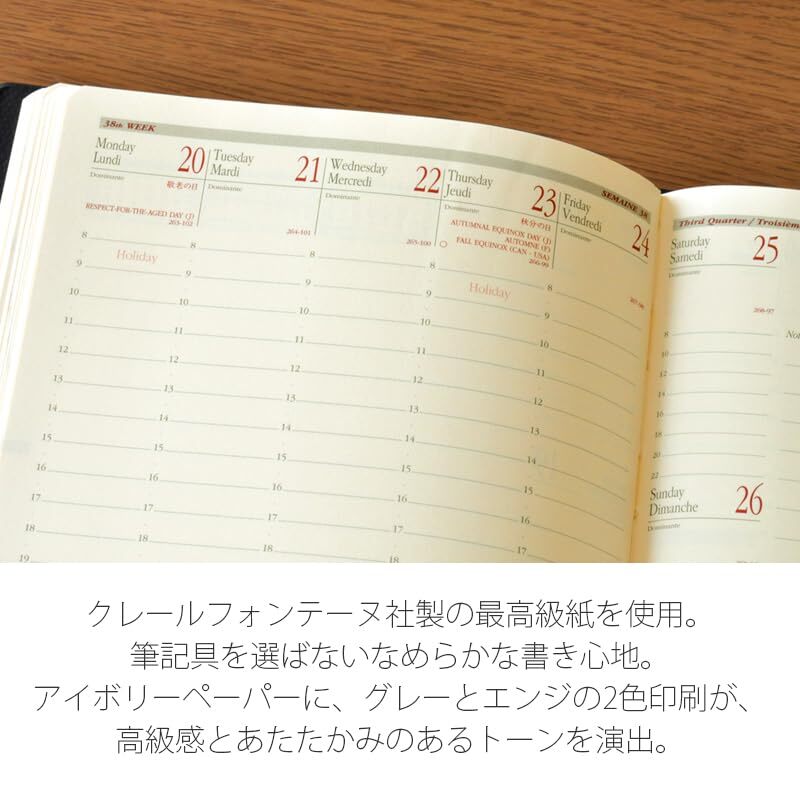 38th WEEK
SEMAINE 38
Monday
Lundi
20
Dominante
敬老の日
RESPECT-FOR-THE-AGED DAY (J)
263-102
Tuesday
Mardi
21
Dominante
264-101
Wednesday
Mercredi
22
Dominante
265-100
Thursday
Jeudi
23
Dominante
秋分の日
AUTUMNAL EQUINOX DAY (J)
AUTOMNE (F)
FALL EQUINOX (CAN - USA)
266-99
Friday
Vendredi
24
Dominante
267-98
8
Holiday
9
10
11
12
13
14
15
16
17
18
19
8
9
10
11
12
13
14
15
16
17
18
8
9
10
11
12
13
14
15
16
17
18
8
9
Holiday
10
11
12
13
14
15
16
17
18
8
9
10
11
12
13
14
15
16
17
18
Third Quarter / Troisièm
Saturday
Samedi
25
Dominante
268-97
8
10
12
14
16
18
20
22
Sunday
Dimanche
26
Dominante
クレールフォンテーヌ社製の最高級紙を使用。
筆記具を選ばないなめらかな書き心地。
アイボリーペーパーに、グレーとエンジの2色印刷が、
高級感とあたたかみのあるトーンを演出。